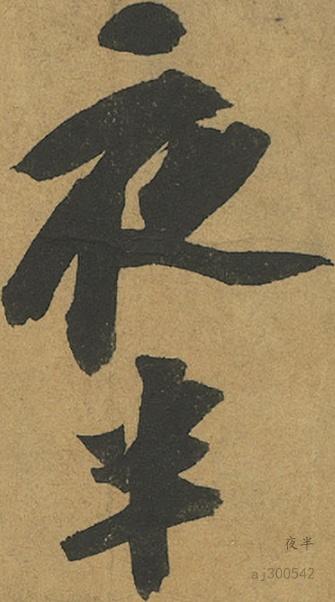 夜半
夜半
aj300542